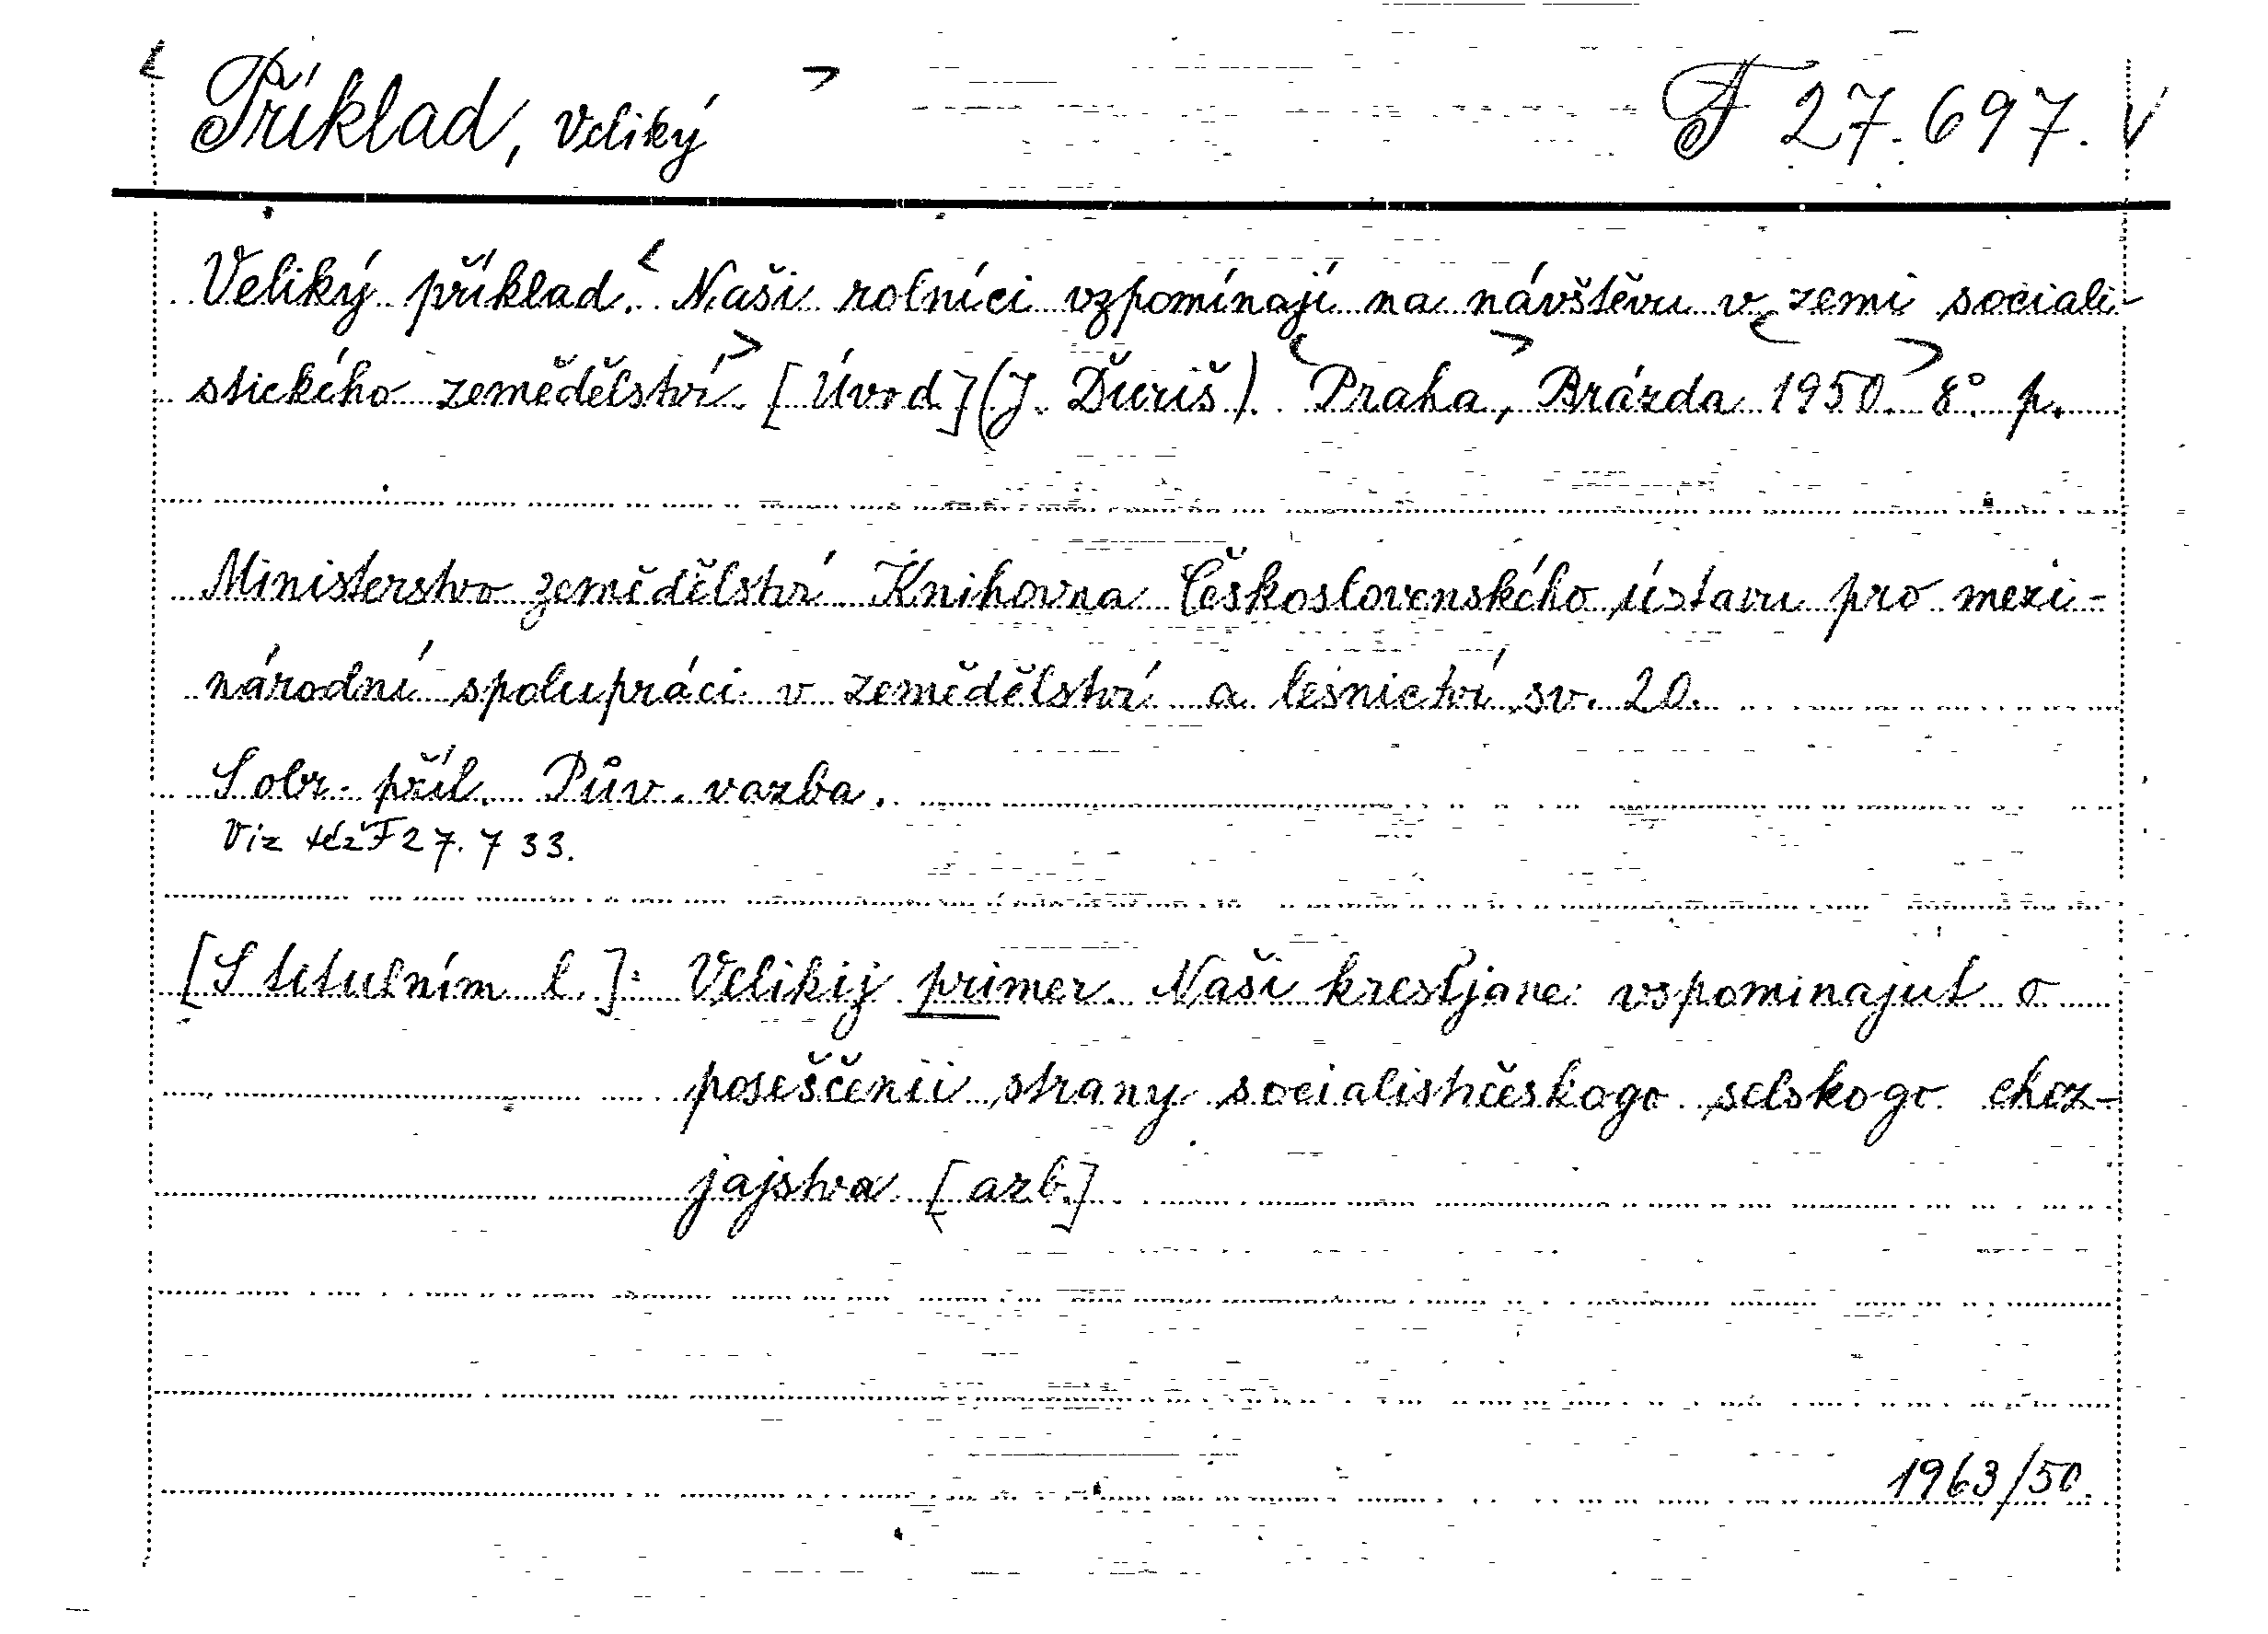 Příklad, Veliký F 27.697. V
Veliký příklad. Naši rolníci vzpomínají na návštěvu v zemi sociali-
stického zemědělství. [Úvod] (J. Ďuriš). Praha, Brázda 1950. 8°. p.
Ministerstvo zemědělství Knihovna Československého ústavu pro mezi-
národní spolupráci v zemědělství a lesnictví, sv. 20.
S obr. příl. Pův. vazba.
Viz též F 27.733.
[S titulním l.]: Velikij primer. Naši kresťjane vspominajut o
poseščenii strany socialističeskogo selskogo choz-
jajstva [azb.]
1963/50.